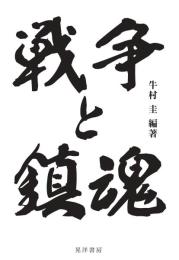 戦争
と
鎮魂
牛村 圭 編著
晃洋書房